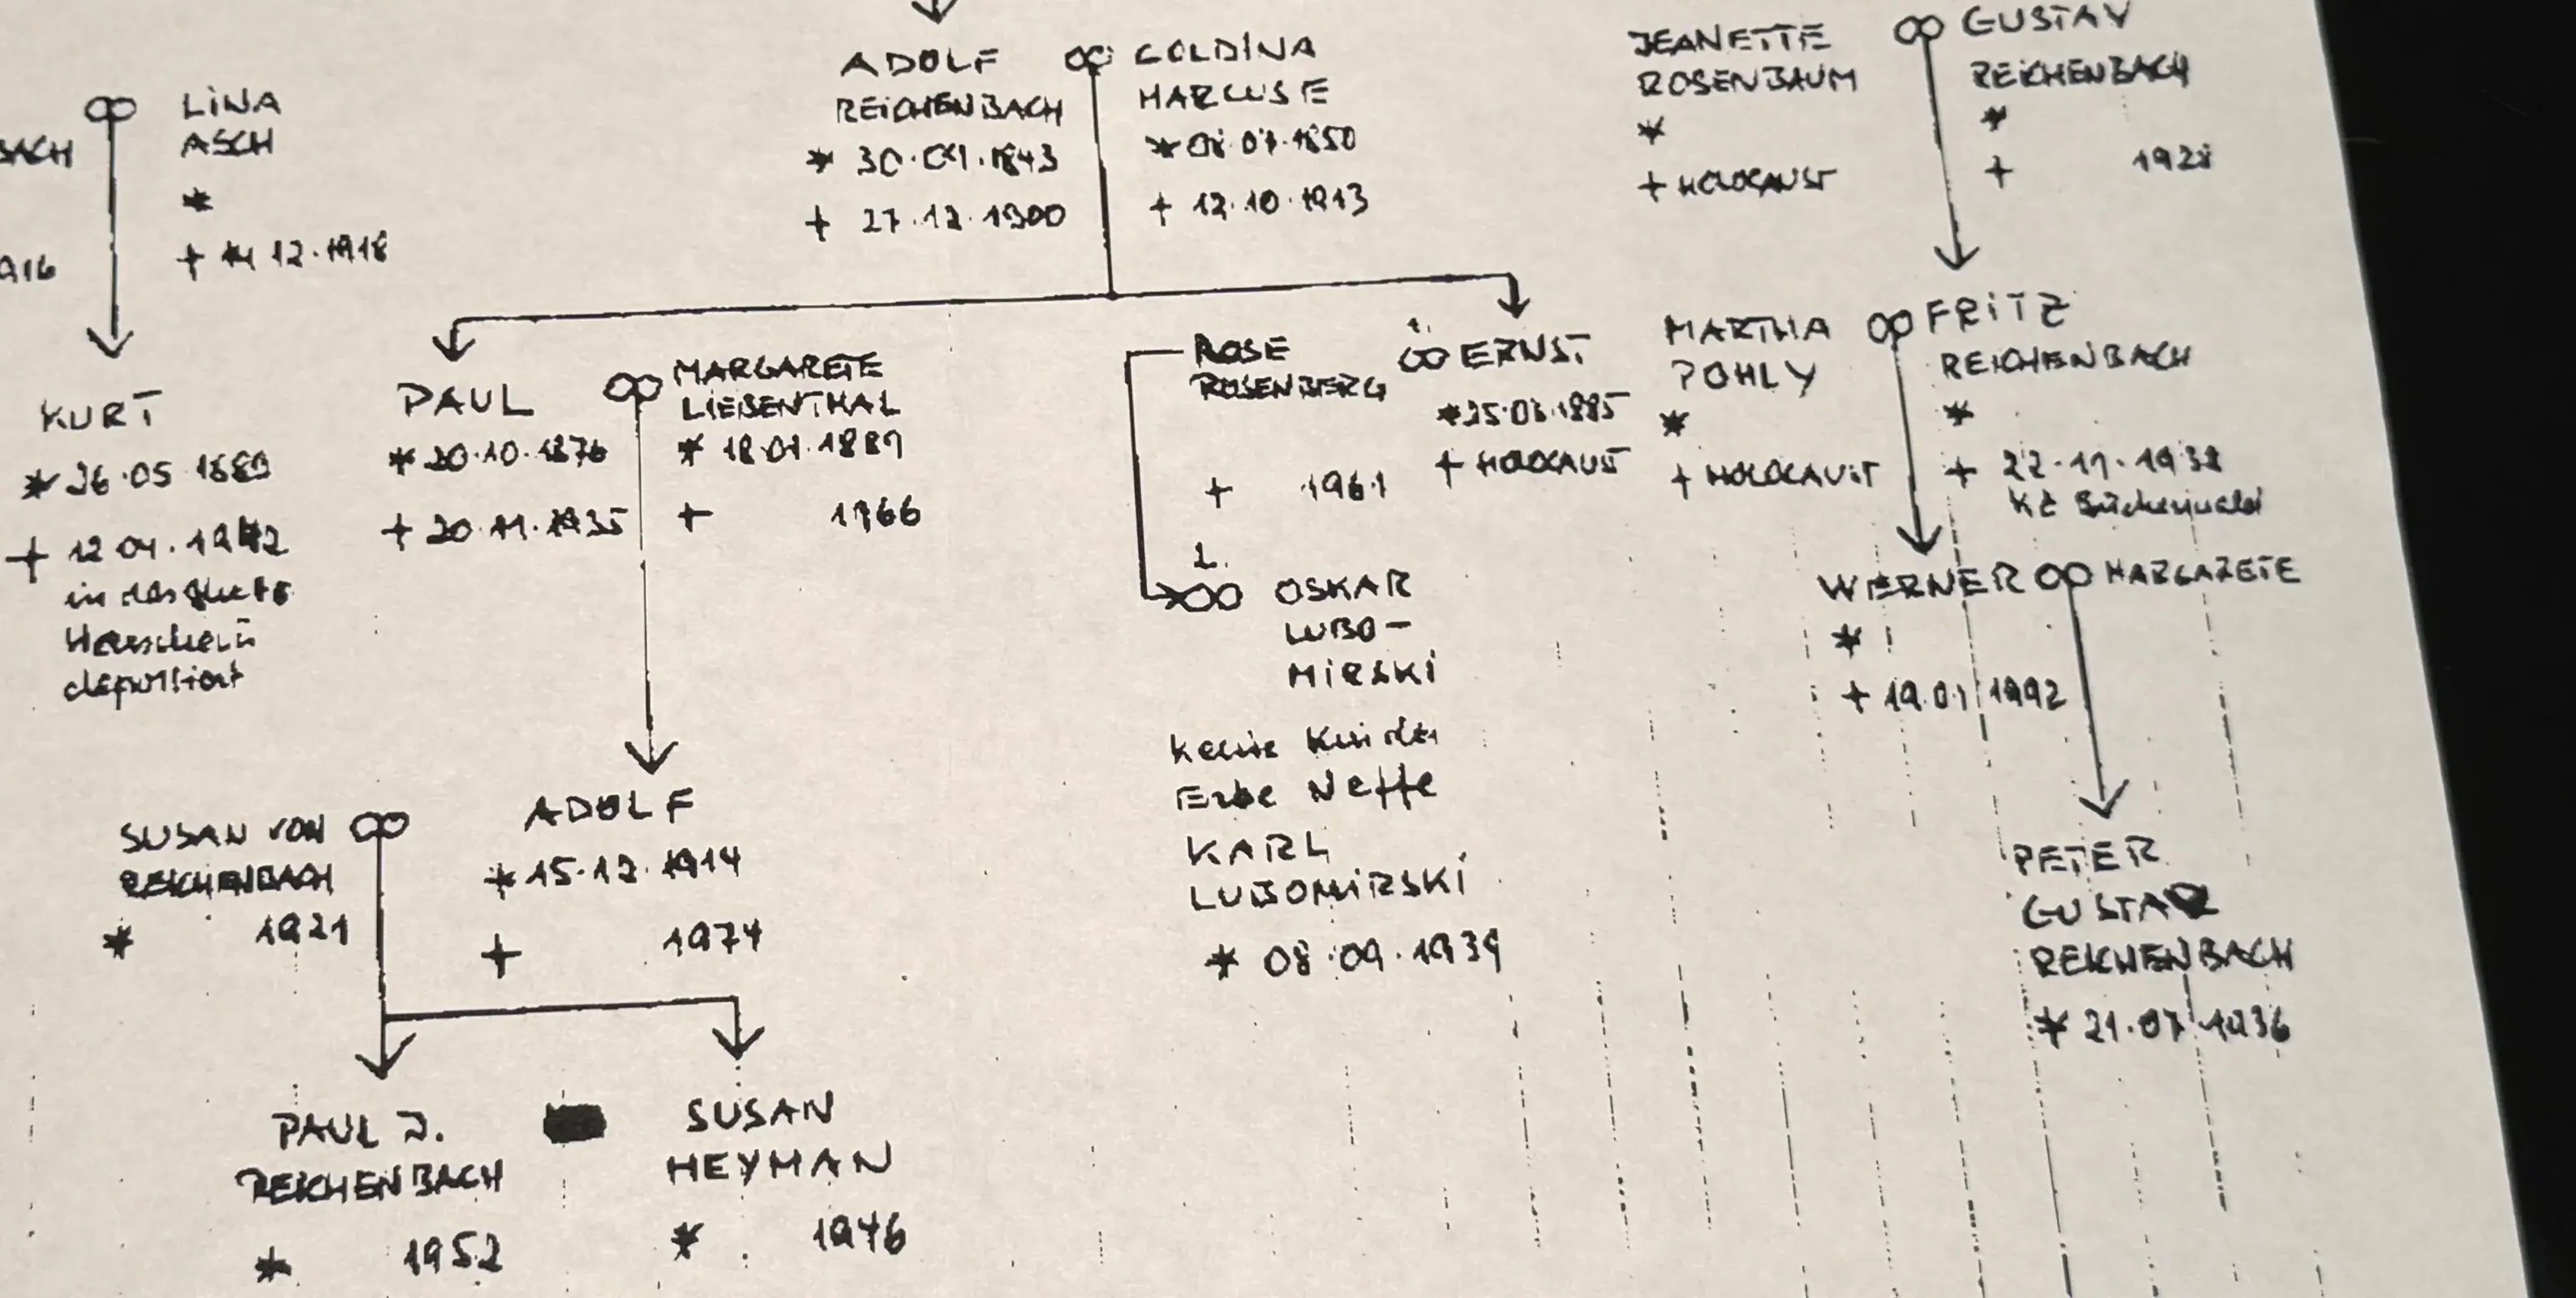 BACH
916
∞ LINA
ASCH
*
+ 14 12.1918
KURT
* 26.05 1889
+ 12 04.1942
in das Ghetto
Warschau
deportiert
ADOLF
REICHENBACH
* 30.01.1843
+ 27.12.1900
∞ GOLDINA
MARCUSE
* 08.07.1850
+ 12.10.1913
PAUL
* 20.10.1876
+ 20.11.1935
∞ MARGARETE
LIEBENTHAL
* 18.01.1889
+ 1966
ROSE
ROSENBERG
+ 1961
1.
∞ ERNST
* 25.03.1885
+ HOLOCAUST
2.
∞ OSKAR
LUBO-
MIRSKI
Keine Kinder
Erbe Neffe
KARL
LUBOMIRSKI
* 08.09.1939
SUSAN VON
REICHENBACH
* 1921
∞ ADOLF
* 15.12.1914
+ 1974
PAUL J.
REICHENBACH
* 1952
SUSAN
HEYMAN
* 1946
JEANETTE
ROSENBAUM
*
+ HOLOCAUST
∞ GUSTAV
REICHENBACH
*
+ 1928
MARTHA
POHLY
*
+ HOLOCAUST
∞ FRITZ
REICHENBACH
*
+ 22.11.1938
KZ Buchenwald
WERNER ∞ MARGARETE
*
+ 19.01 1992
PETER
GUSTAV
REICHENBACH
* 21.07 1936